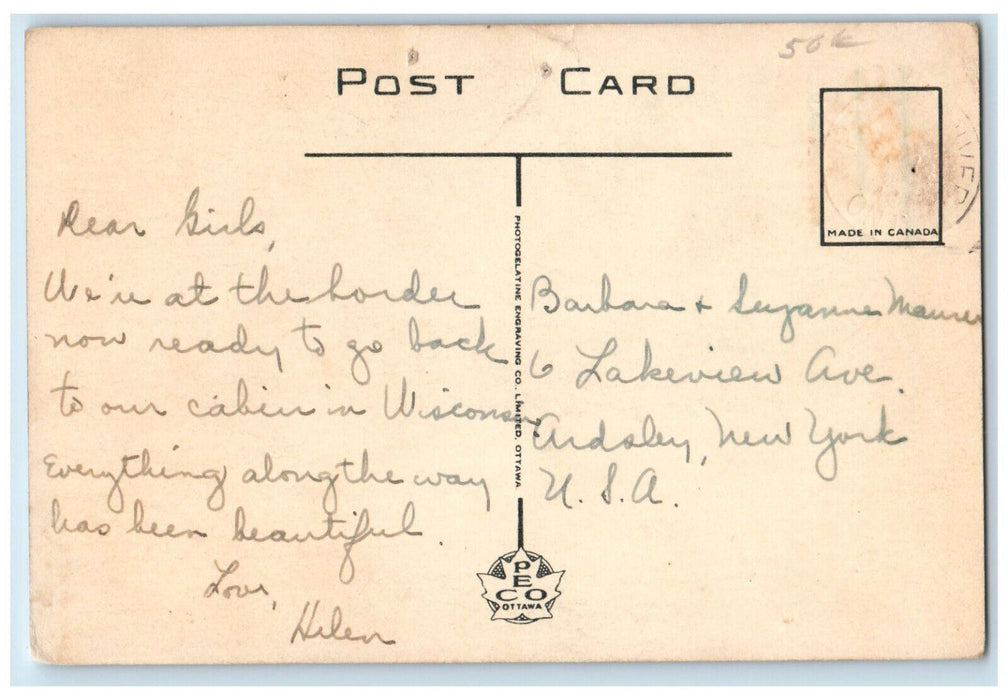 50¢
POST CARD
MADE IN CANADA
Dear Girls,
We're at the border
now ready to go back
to our cabin in Wisconsin.
Everything along the way
has been beautiful.
Love,
Helen
PHOTOGELATINE ENGRAVING CO., LIMITED, OTTAWA
Barbara + Suzanne Maurer
6 Lakeview Ave.
Ardsley, New York
U.S.A.
PECO
OTTAWA